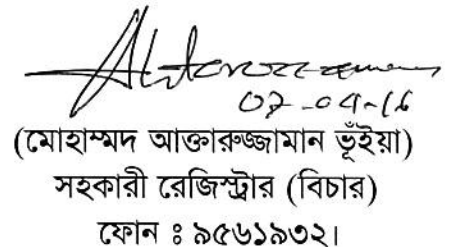 (মোহাম্মদ আক্তারুজ্জামান ভূঁইয়া)
সহকারী রেজিস্ট্রার (বিচার)
ফোন ঃ ৯৫৬১৯৩২।